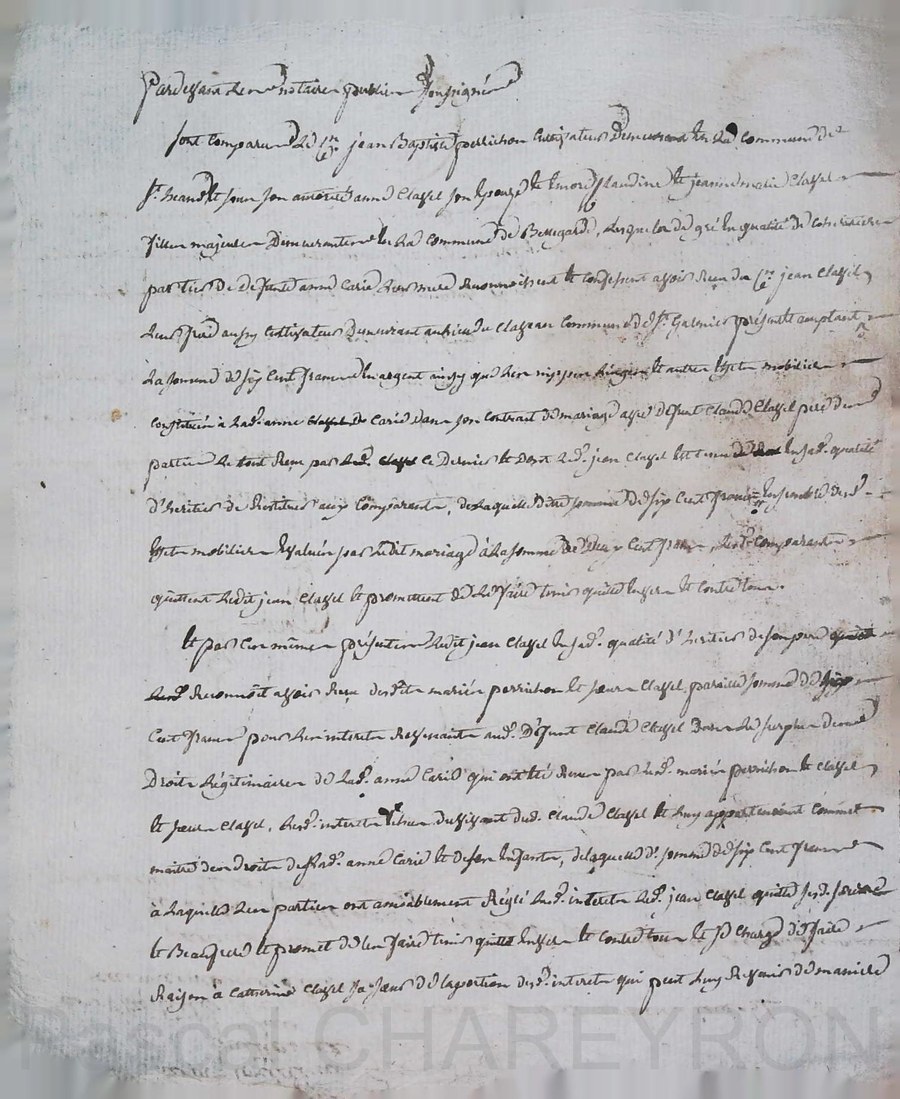 Pardevant les notaires publics soussignés
sont comparus le Cen jean Baptiste perrichon cultivateur demeurant en la commune de
St heand et sous son autorité anne Clapel son épouse et encore Claudine et jeanne marie Clapel
filles majeures demeurantes en la commune de Bellegarde, lesquelles de gré en qualité de cohéritières
partiés de defunte anne Carié leur mere reconnoissent et confessent avoir reçu du Cen jean Clapel
leur frere aussy cultivateur demeurant au lieu du commune de St Galmier présent et acceptant
la somme de six cent francs en argent ainsy que les nippes linges et autres effets mobiliers
constitués à lad. anne Carié dans son contrat de mariage avec défunt Claude Clapel pere des
parties le tout reçu par ce dernier et dont led. jean Clapel est tenu en sad. qualité
d'héritier de restituer aux comparants, de laquelle ditte somme de six cent francs ensemble desd.
effets mobiliers évalués par ledit mariage à la somme de cent francs, lesd. comparants
quittent ledit jean Clapel et promettent de le faire tenir quitte envers et contre tous.
et par ces mêmes présentes ledit jean Clapel en sad. qualité d'héritier de son pere
reconnoit avoir reçu desdits mariés perrichon et sœurs Clapel pareille somme de six
cent francs pour les interets revenants aud. défunt Claude Clapel dans le surplus des
droits légitimaires de lad. anne Carié qui ont été reçus par lesd. mariés perrichon et Clapel
et sœurs Clapel, lesd. interets du vivant dud. Claude Clapel et luy appartenant comme
maitre des droits de lad. anne Carié et de ses enfants, de laquelle d. somme de six cent francs
à laquelle les parties ont amiablement réglé lesd. interets led. jean Clapel quitte sesd. sœurs
et Beaufrere et promet de les faire tenir quitte envers et contre tous et se charge de faire
raison à Catherine Clapel sa sœur de la portion desd. interets qui peut luy revenir de maniere
Pascal CHAREYRON